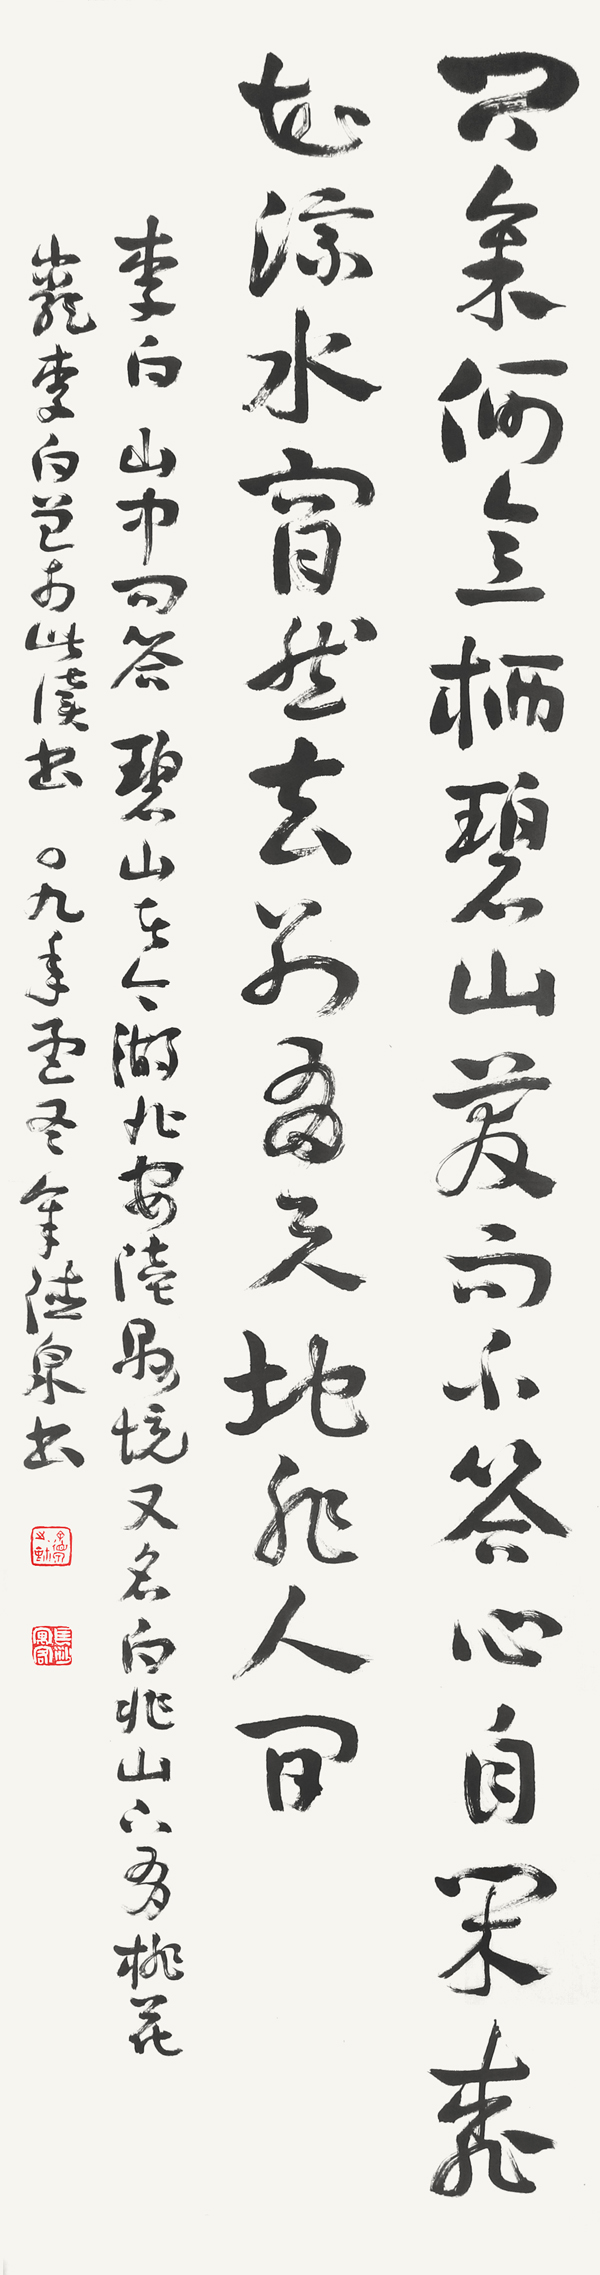 問余何意栖碧山笑而不答心自閑桃
花流水窅然去別有天地非人間
李白山中問答 碧山在今湖北安陸縣境又名白兆山下有桃花
巖李白曾於此讀書 〇九年孟冬余德泉書